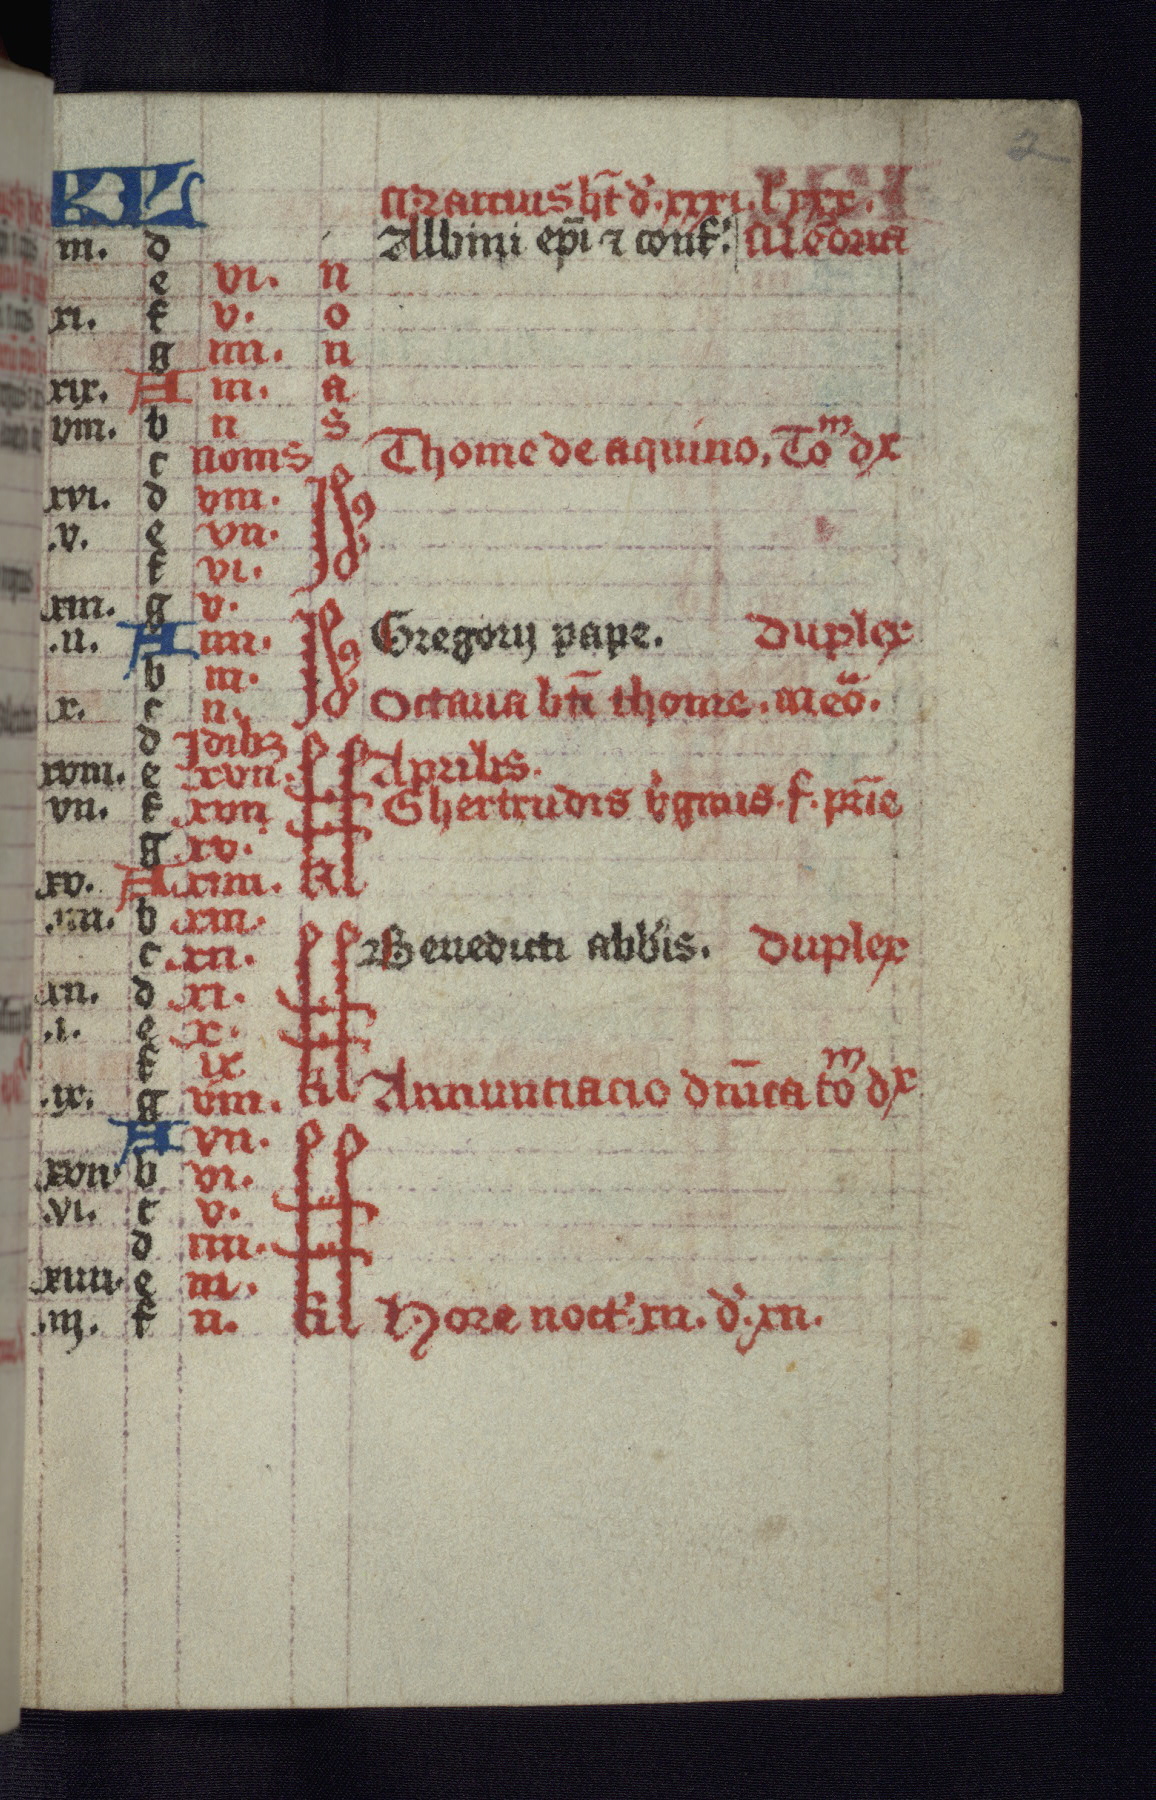 2
KL Marcius ht̄ d'. xxxi. l' xxx.
iii. d Albini ep̄i ⁊ conf'. Me͞oria
e vi. n
xi. f v. o
g iiii. n
xix. A iii. a
viii. b ii s
c nonis Thome de aquino, Toᵐ dx
xvi. d viii. Idꝰ
.v. e vii.
f vi.
xiii. g v. Idꝰ
.ii. A iiii. Gregorij pape. Duplex
b iii.
.x. c ii. Octaua bt̄i thome. meō.
d Idibꝫ
xviii. e xvii. kl Aprilis.
vii. f xvii Ghertrudis v'ginis. f. pr̄ie
g xv.
xv. A xiiii. kl
.iiii. b xiii.
c xii. Benedicti abb'is. Duplex
xii. d xi. kl
.i. e x.
f ix
.ix. g viii. kl Annunciacio dn̄ica toᵐ dx
A vii.
xvii b vi.
.vi. c v.
d iiii.
xiiii. e iii.
.iij. f ii. kl Hore noct'. xii. d'. xii.